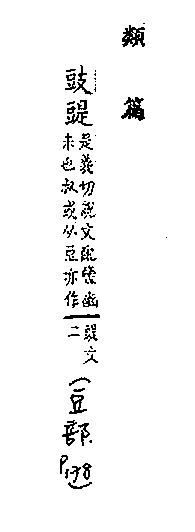 類篇
豉䜴是義切說文配鹽幽
尗也叔或从豆亦作
䜴文
二
(豆部
P.138)